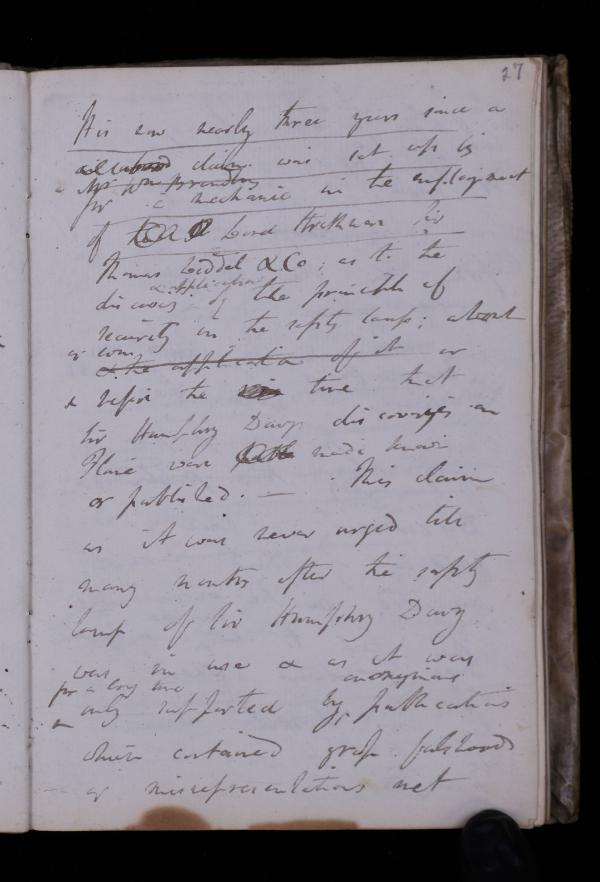 27
It is now nearly three years since a
claim was set up by
for a mechanic in the employment
of Lord Strathmore Sir
Thomas Liddel & Co; as to the
& application
discovery of the principle of
security in the safety lamp; about
& the application of it or
& before the time that
Sir Humphry Davy discoveries on
Flame were made known
or published. — This claim
as it was never urged till
many months after the safety
lamp of Sir Humphry Davy
was in use & as it was
for a long time anonymous
only supported by publications
which contained gross falsehoods
or misrepresentations not